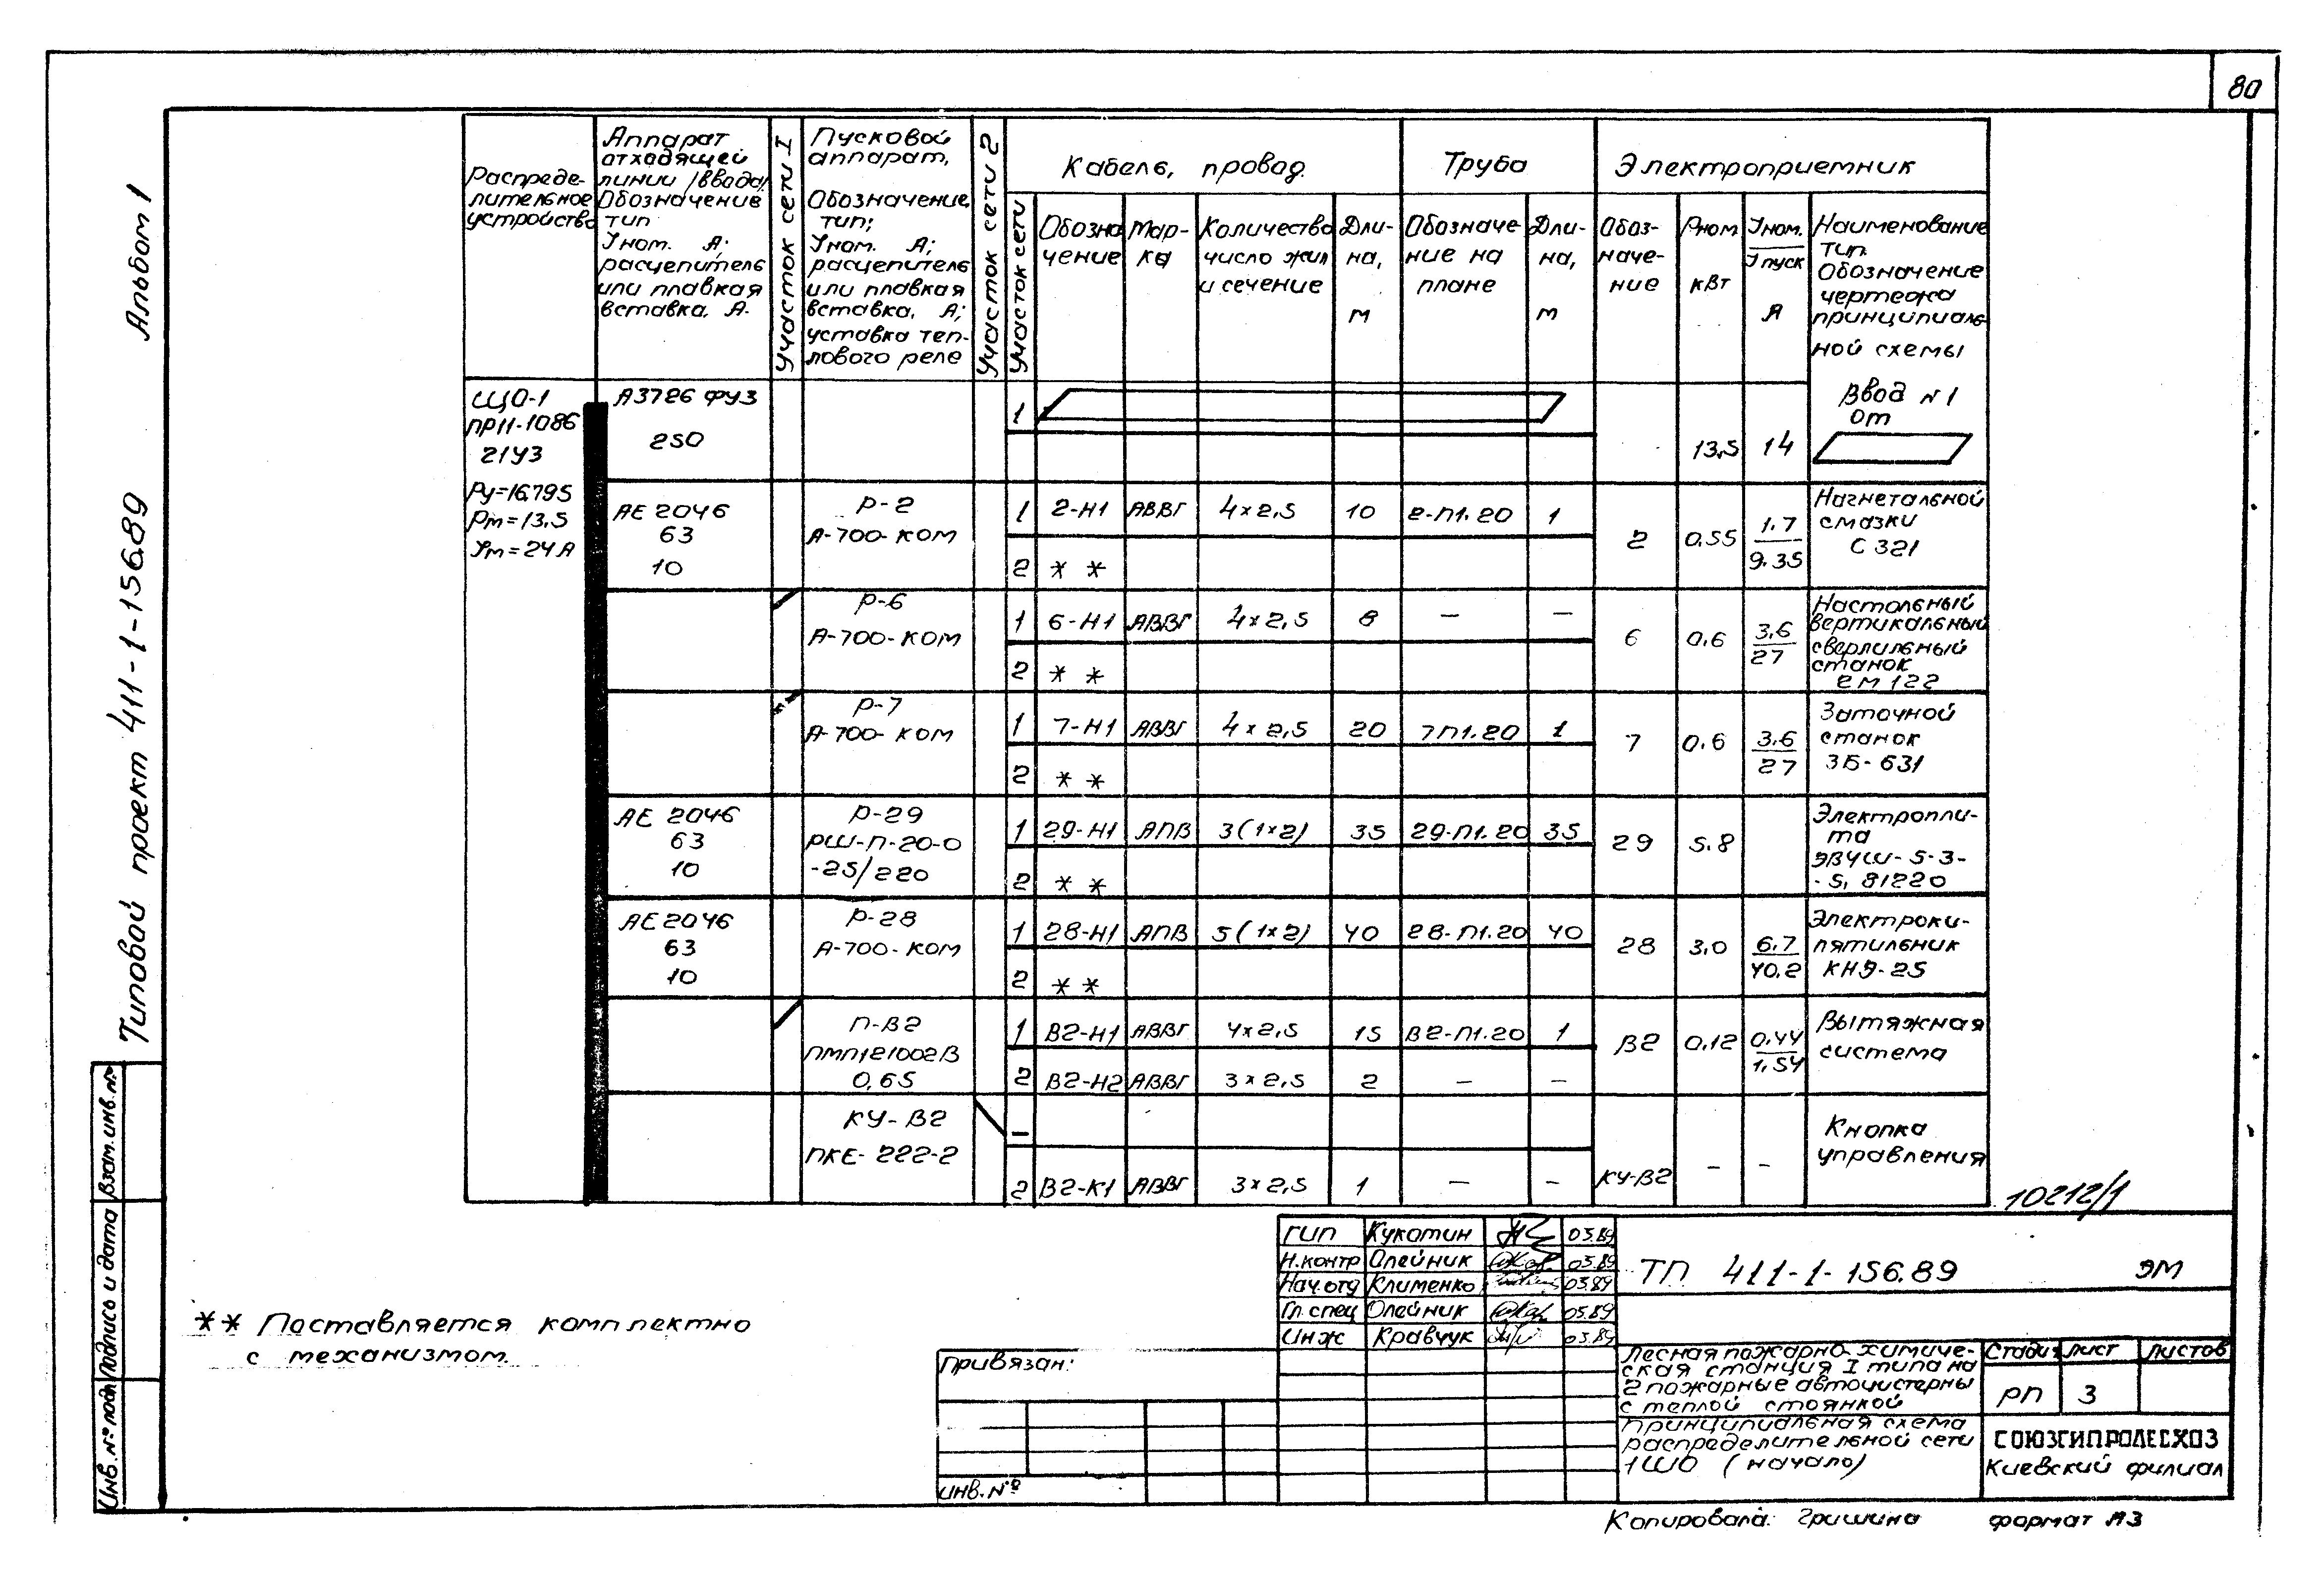 80
Альбом 1
Типовой проект 411-1-156.89
Взам.инв.№
Подпись и дата
Инв.№ подл
Распреде-
лительное
устройство
Аппарат
отходящей
линии /ввода/
Обозначение
тип
Iном. А;
расцепитель
или плавкая
вставка, А.
Участок сети I
Пусковой
аппарат,
Обозначение,
тип;
Iном. А;
расцепитель
или плавкая
вставка, А;
уставка теп-
лового реле
Участок сети 2
Участок сети
Кабель, провод
Труба
Электроприемник
Обозна
чение
Мар-
ка
Количество
число жил
и сечение
Дли-
на,
м
Обозначе-
ние на
плане
Дли-
на,
м
Обоз-
наче-
ние
Рном
кВт
Iном.
Iпуск
А
Наименование
тип.
Обозначение
чертежа
принципиаль
ной схемы
ЩО-1
ПР11-1086
21У3
А3726 ФУЗ
250
1
13,5 14
Ввод №1
от
Ру=16.795
Рм=13,5
Iм=24А
АЕ 2046
63
10
Р-2
А-700-КОМ
1 2-Н1 АВВГ 4×2,5 10 2-П1.20 1
2 * *
2 0,55 1.7
9.35
Нагнетальной
смазки
С 321
Р-6
А-700-КОМ
1 6-Н1 АВВГ 4×2,5 8 — —
2 * *
6 0.6 3,6
27
Настольный
вертикальный
сверлильный
станок
2М 122
Р-7
А-700-КОМ
1 7-Н1 АВВГ 4×2,5 20 7П1.20 1
2 * *
7 0.6 3.6
27
Заточной
станок
3Б-631
АЕ 2046
63
10
Р-29
РШ-П-20-0
-25/220
1 29-Н1 АПВ 3(1×2) 35 29-П1.20 35
2 * *
29 5.8
Электропли-
та
ЭВЧШ-5-3-
-5, 8/220
АЕ2046
63
10
Р-28
А-700-КОМ
1 28-Н1 АПВ 5(1×2) 40 28-П1.20 40
2 * *
28 3,0 6,7
40,2
Электроки-
пятильник
КНЭ-25
П-В2
ПМЛ121002В
0,65
1 В2-Н1 АВВГ 4×2,5 15 В2-П1.20 1
2 В2-Н2 АВВГ 3×2,5 2 — —
В2 0,12 0,44
1,54
Вытяжная
система
КУ-В2
ПКЕ-222-2
—
2 В2-К1 АВВГ 3×2,5 1 — —
КУ-В2 — —
Кнопка
управления
10212/1
** Поставляется комплектно
с механизмом.
ГИП Кукотин 03.89
Н.контр Олейник 03.89
Нач.отд Клименко 03.89
Гл.спец Олейник 03.89
Инж Кравчук 03.89
ТП 411-1-156.89 ЭМ
Привязан:
инв.№
Лесная пожарно-химиче-
ская станция I типа на
2 пожарные автоцистерны
с теплой стоянкой
Стадия Лист Листов
РП 3
Принципиальная схема
распределительной сети
1ШО (начало)
СОЮЗГИПРОЛЕСХОЗ
Киевский филиал
Копировала: Гришина формат А3